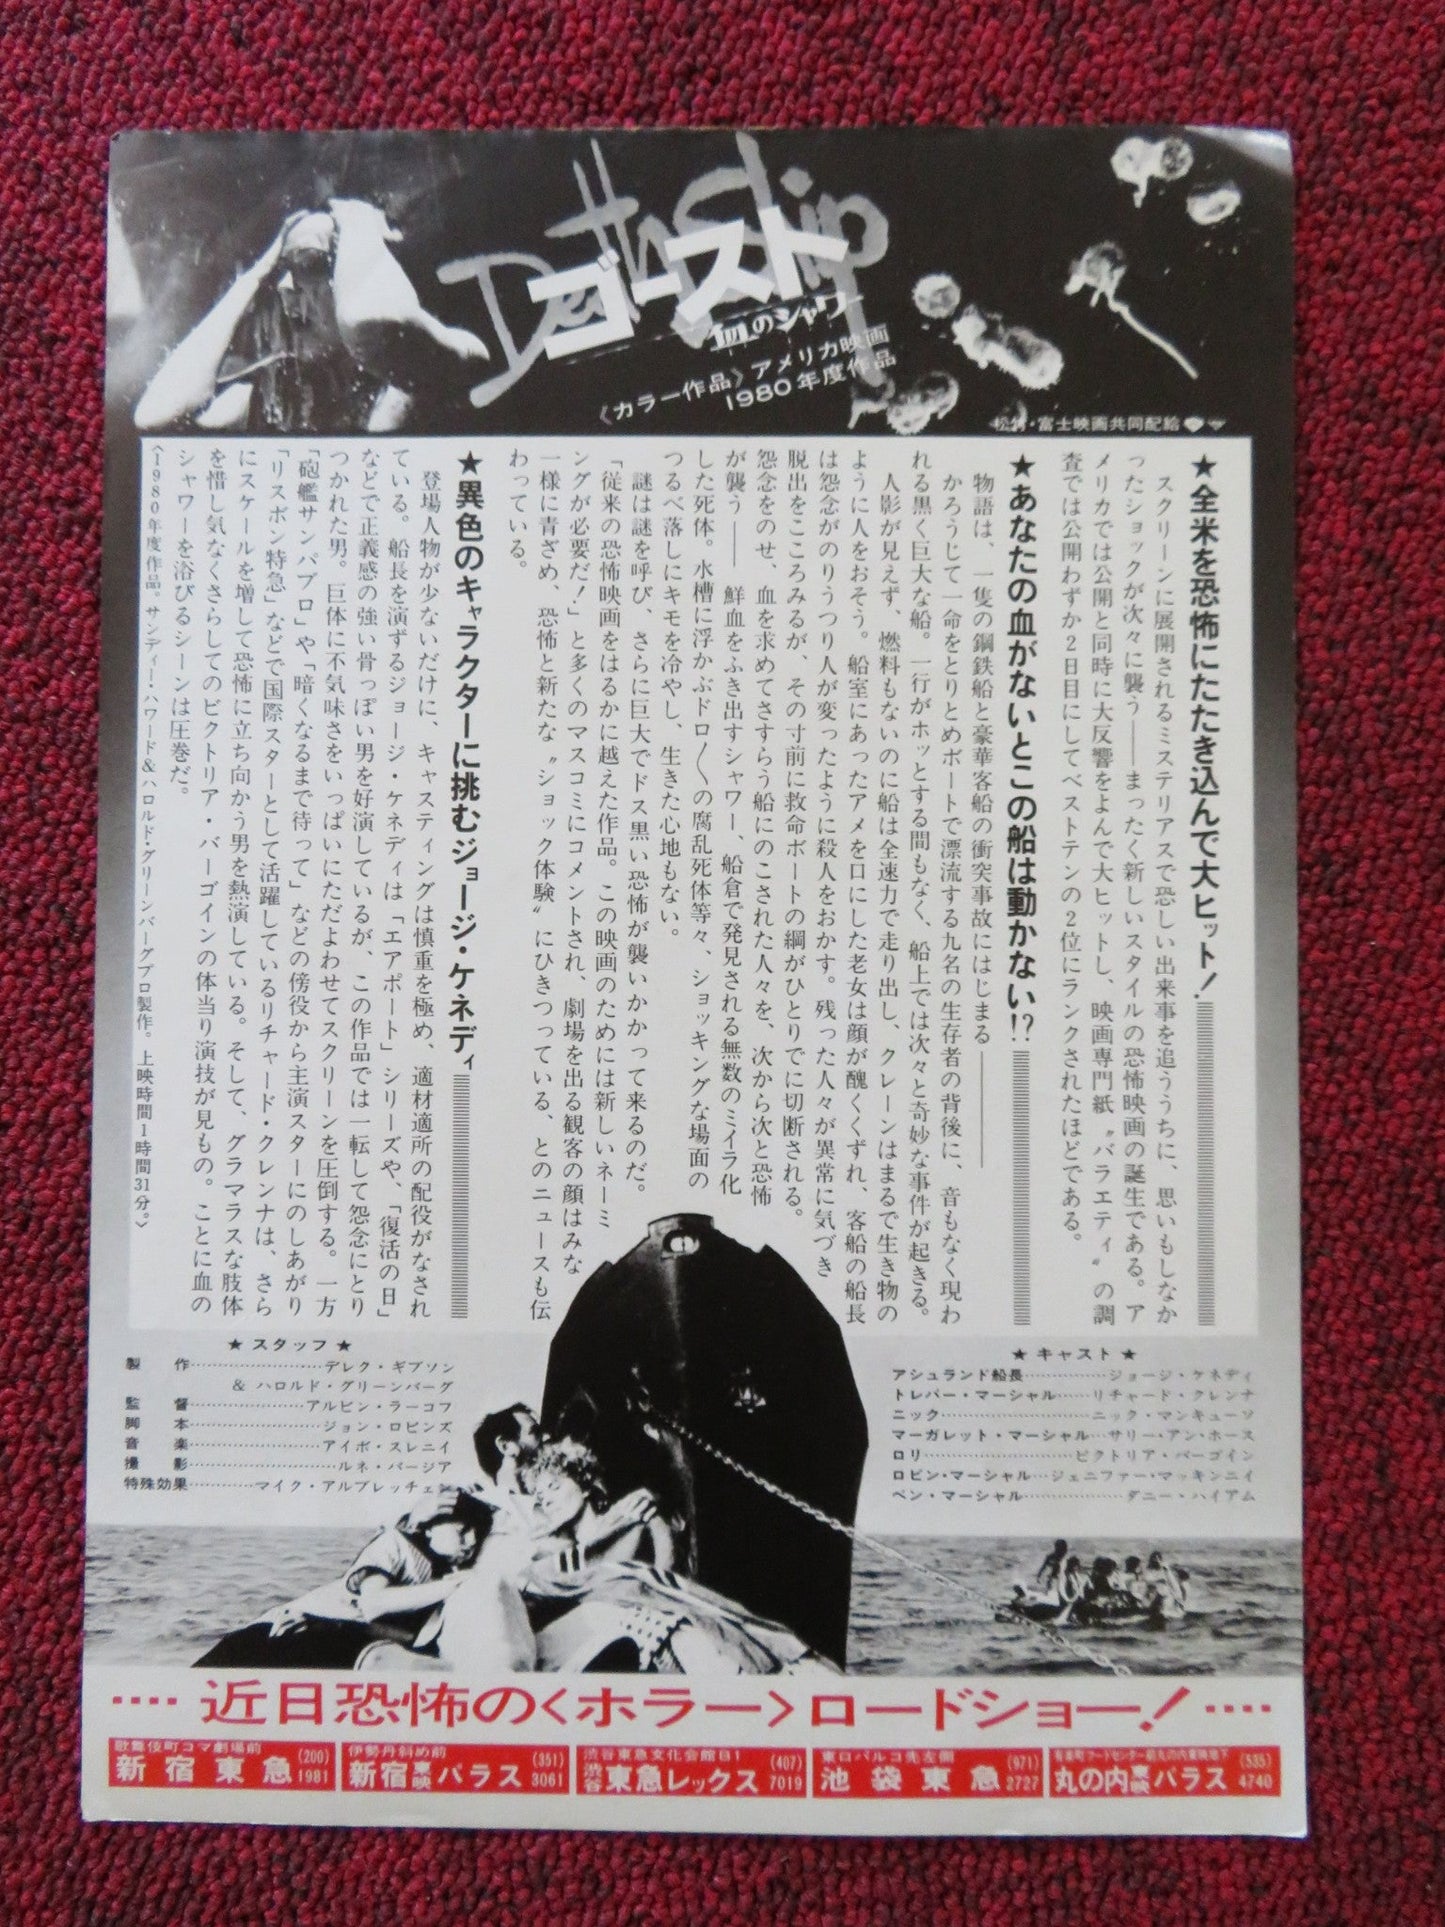 Death Ship
ゴースト
血のシャワー
〈カラー作品〉アメリカ映画
1980年度作品
松竹・富士映画共同配給
★全米を恐怖にたたき込んで大ヒット！
スクリーンに展開されるミステリアスで恐しい出来事を追ううちに、思いもしなか
ったショックが次々に襲う――まったく新しいスタイルの恐怖映画の誕生である。ア
メリカでは公開と同時に大反響をよんで大ヒットし、映画専門紙〝バラエティ〟の調
査では公開わずか2日目にしてベストテンの2位にランクされたほどである。
★あなたの血がないとこの船は動かない!?
物語は、一隻の鋼鉄船と豪華客船の衝突事故にはじまる――
かろうじて一命をとりとめボートで漂流する九名の生存者の背後に、音もなく現わ
れる黒く巨大な船。一行がホッとする間もなく、船上では次々と奇妙な事件が起きる。
人影が見えず、燃料もないのに船は全速力で走り出し、クレーンはまるで生き物の
ように人をおそう。船室にあったアメを口にした老女は顔が醜くくずれ、客船の船長
は怨念がのりうつり人が変ったように殺人をおかす。残った人々が異常に気づき
脱出をこころみるが、その寸前に救命ボートの綱がひとりでに切断される。
怨念をのせ、血を求めてさすらう船にのこされた人々を、次から次と恐怖
が襲う――　鮮血をふき出すシャワー、船倉で発見される無数のミイラ化
した死体。水槽に浮かぶドロ〱の腐乱死体等々、ショッキングな場面の
つるべ落しにキモを冷やし、生きた心地もない。
謎は謎を呼び、さらに巨大でドス黒い恐怖が襲いかかって来るのだ。
「従来の恐怖映画をはるかに越えた作品。この映画のためには新しいネーミ
ングが必要だ！」と多くのマスコミにコメントされ、劇場を出る観客の顔はみな
一様に青ざめ、恐怖と新たな〝ショック体験〟にひきつっている、とのニュースも伝
わっている。
★異色のキャラクターに挑むジョージ・ケネディ
登場人物が少ないだけに、キャスティングは慎重を極め、適材適所の配役がなされ
ている。船長を演ずるジョージ・ケネディは「エアポート」シリーズや、「復活の日」
などで正義感の強い骨っぽい男を好演しているが、この作品では一転して怨念にとり
つかれた男。巨体に不気味さをいっぱいにただよわせてスクリーンを圧倒する。一方
「砲艦サンパブロ」や「暗くなるまで待って」などの傍役から主演スターにのしあがり
「リスボン特急」などで国際スターとして活躍しているリチャード・クレンナは、さら
にスケールを増して恐怖に立ち向かう男を熱演している。そして、グラマラスな肢体
を惜し気なくさらしてのビクトリア・バーゴインの体当り演技が見もの。ことに血の
シャワーを浴びるシーンは圧巻だ。
〈1980年度作品。サンディー・ハワード&ハロルド・グリーンバーグプロ製作。上映時間1時間31分。〉
★ スタッフ ★
製　作……………………デレク・ギブソン
& ハロルド・グリーンバーグ
監　督……………………アルビン・ラーコフ
脚　本……………………ジョン・ロビンズ
音　楽……………………アイボ・スレニイ
撮　影……………………ルネ・バージア
特殊効果…………マイク・アルブレッチェン
★ キャスト ★
アシュランド船長……………ジョージ・ケネディ
トレバー・マーシャル……リチャード・クレンナ
ニック……………………ニック・マンキューソ
マーガレット・マーシャル…サリー・アン・ホース
ロリ……………………ビクトリア・バーゴイン
ロビン・マーシャル…ジェニファー・マッキンニイ
ベン・マーシャル……………ダニー・ハイアム
‥‥近日恐怖の〈ホラー〉ロードショー！‥‥
歌舞伎町コマ劇場前
新宿東急 (200) 1981
伊勢丹斜め前
新宿東映パラス (351) 3061
渋谷東急文化会館B1
渋谷東急レックス (407) 7019
東口パルコ先左側
池袋東急 (971) 2727
有楽町フードセンター前丸の内東映地下
丸の内東映パラス (535) 4740